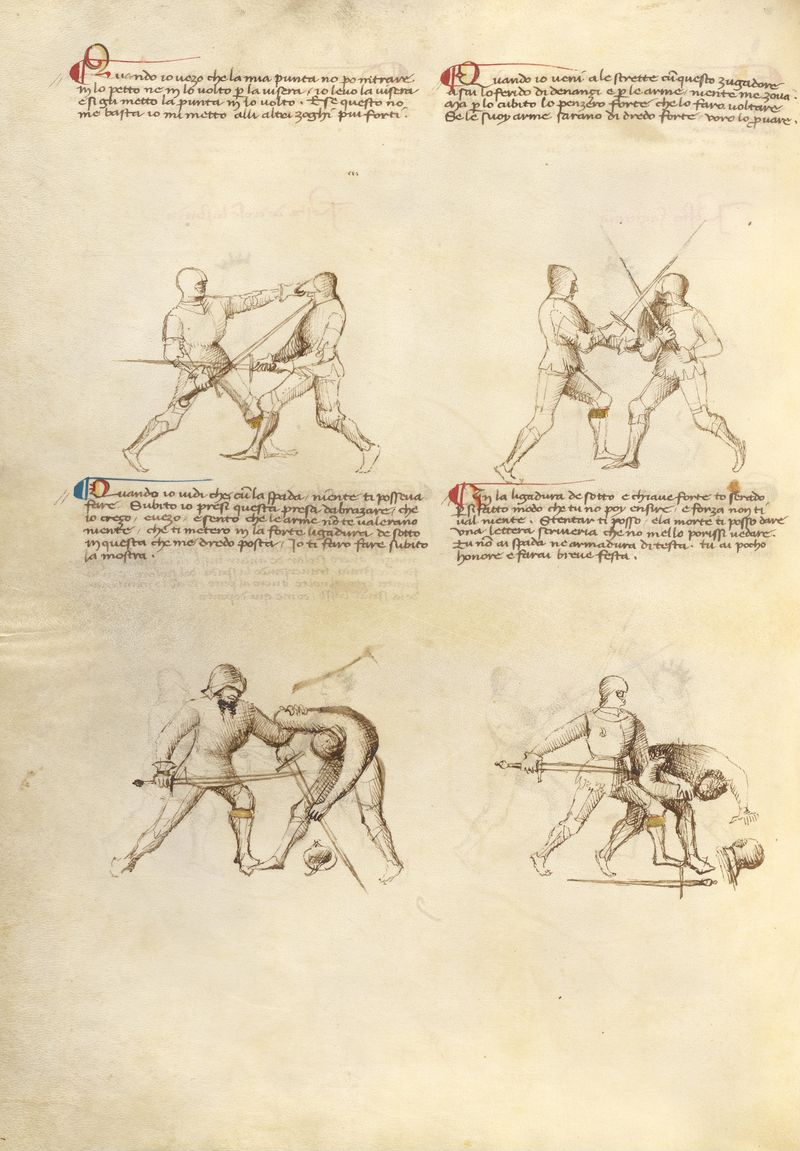 Quando io vezo che la mia punta no po intrare
in lo petto ne in lo volto per la visera, io levo la visera
e si gli metto la punta in lo volto. E se questo no
me basta io mi metto alli altri zoghi piu forti.
Quando io veni a le strette cu questo zugadore
Asai lo ferido di denanzi e per le arme niente me zova.
Ma per lo cubito lo penzero forte che lo faro voltare
Se le suoy arme sarano di dredo forte voro lo provare.
Quando io vidi che cu la spada niente ti posseva
fare. Subito io presi questa presa d'abrazare, che
io crezo, e vezo, e sento che le arme no te valerano
niente, che ti metero in la forte ligadura de sotto
in questa che me dredo posta, Io ti faro fare subito
la mostra.
In la ligadura de sotto e chiave forte to serado,
per si fatto modo che tu no poy ensire, e forza non ti
val niente. Stentar ti posso, e la morte ti posso dare
Una lettera scriveria che no mello porissi vedare.
Tu no ai spada ne armadura di testa, tu ai pocho
honore e farai breve festa.